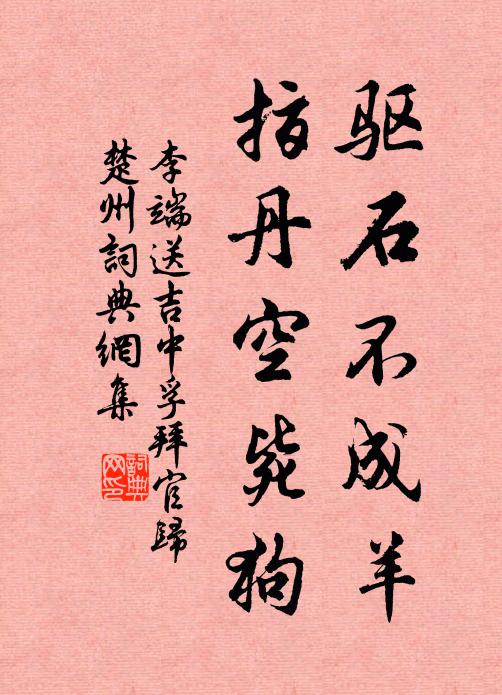 驱石不成羊
指丹空毙狗
李端送吉中孚拜官歸
楚州詞典網集
詞典
网印